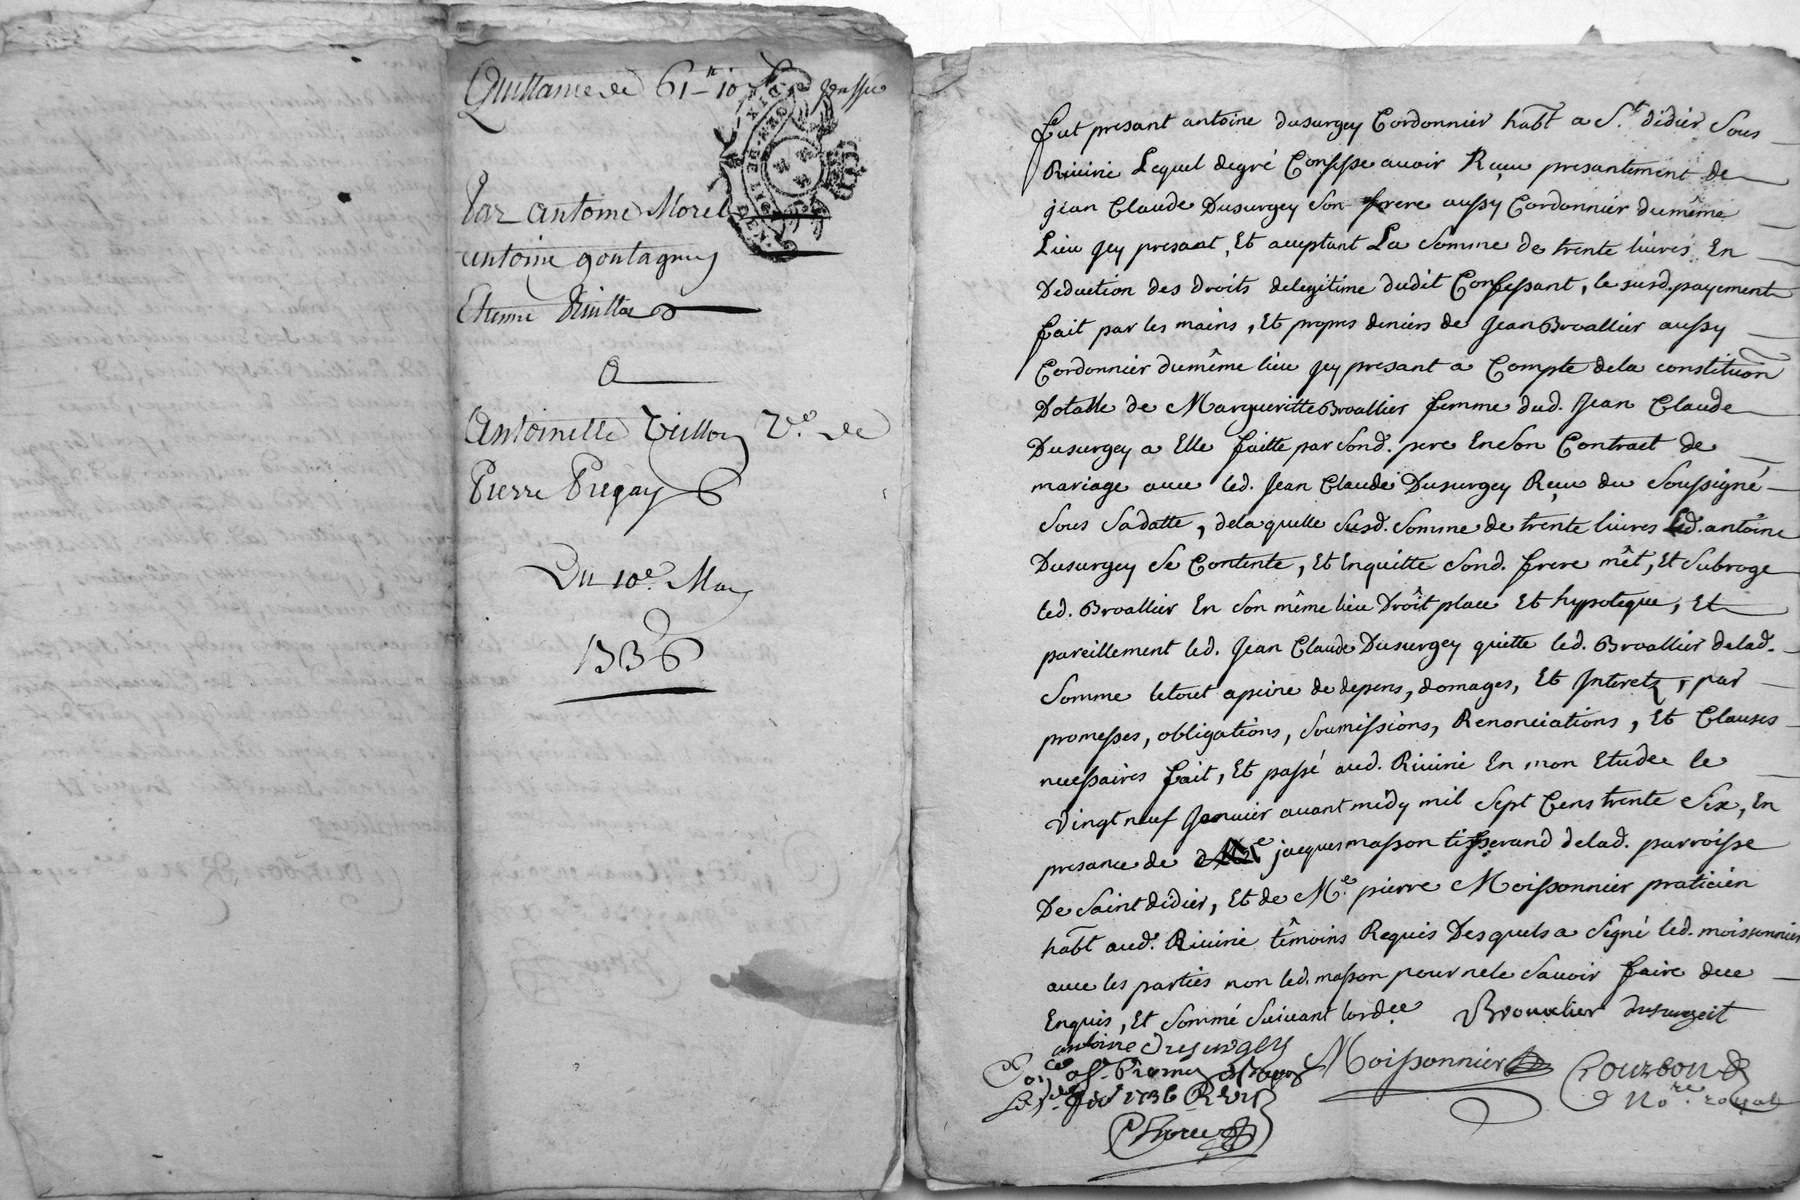 Quittance de 61ᵗᵗ 10
Par Antoine Morel
antoine goutagny
Etienne
a
Antoinelle Veillon V.e de
Pierre Pregay
Du 10e. May
1736
Fut presant antoine dusurgey Cordonnier habt a S.t didier Sous
Riuirie Lequel degré Confesse auoir Recu presantement de
jean Claude Dusurgey Son frere aussy Cordonnier dumême
Lieu jcy presant, Et acceptant La Somme de trente liures En
Déduction des droits delegitime dudit Confessant, le susd. payement
fait par les mains, Et propres deniers de Jean Broallier aussy
Cordonnier dumême lieu jcy presant a Compte dela constituõn
Dotalle de Margueritte Broallier femme dud. Jean Claude
Dusurgey a Elle faitte par Sond. pere En Son Contract de
mariage auec led. Jean Claude Dusurgey Recu du Soussigné
Sous Sadatte, dela quelle Susd. Somme de trente liures Led. antoine
Dusurgey Se Contente, Et Enquitte Sond. frere mêt, Et Subroge
led. Broallier En Son même lieu Droit place Et hypoteque, Et
pareillement led. Jean Claude Dusurgey quitte led. Broallier delad.
Somme letout apeine de depens, domages, Et Interetz, par
promesses, obligations, Soumissions, Renonciations, Et Clauses
necessaires fait, Et passé aud. Riuirie En mon Etude le
Vingt neuf Januier auant midy mil Sept Cens trente Six, En
presance de jacques masson tisserand delad. parroisse
De Saint didier, Et de M.e pierre Moissonnier praticien
habt aud. Riuirie têmoins Requis Desquels a Signé led. moissonnier
auec les parties non led. masson pour nele Sauoir faire dece
Enquis, Et Sommé Suiuant lordce Brouallier dusurgeit
antoine dusurgey
Moissonnier Courbon
No.re royal
1736